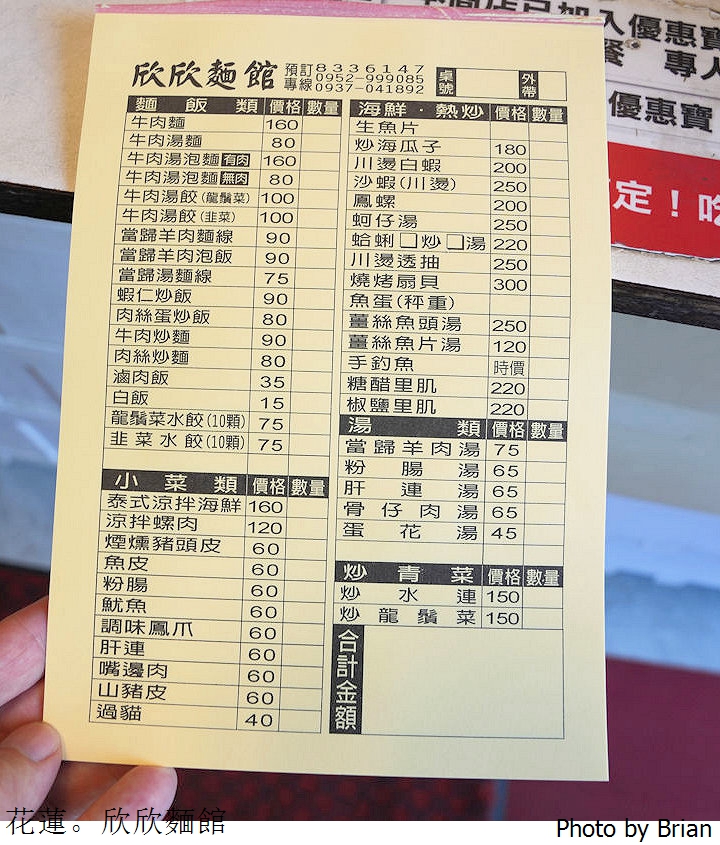 下間店已加入優惠寶
餐 專人
優惠寶
定！吃
欣欣麵館 預訂專線 8336147 0952-999085 0937-041892 桌號 外帶
麵飯類 價格 數量
牛肉麵 160
牛肉湯麵 80
牛肉湯泡麵 有肉 160
牛肉湯泡麵 無肉 80
牛肉湯餃(龍鬚菜) 100
牛肉湯餃(韭菜) 100
當歸羊肉麵線 90
當歸羊肉泡飯 90
當歸湯麵線 75
蝦仁炒飯 90
肉絲蛋炒飯 80
牛肉炒麵 90
肉絲炒麵 80
滷肉飯 35
白飯 15
龍鬚菜水餃(10顆) 75
韭菜水餃(10顆) 75
小菜類 價格 數量
泰式涼拌海鮮 160
涼拌螺肉 120
煙燻豬頭皮 60
魚皮 60
粉腸 60
魷魚 60
調味鳳爪 60
肝連 60
嘴邊肉 60
山豬皮 60
過貓 40
海鮮．熱炒 價格 數量
生魚片
炒海瓜子 180
川燙白蝦 200
沙蝦(川燙) 250
鳳螺 200
蚵仔湯 250
蛤蜊 □炒 □湯 220
川燙透抽 250
燒烤扇貝 300
魚蛋(秤重)
薑絲魚頭湯 250
薑絲魚片湯 120
手釣魚 時價
糖醋里肌 220
椒鹽里肌 220
湯類 價格 數量
當歸羊肉湯 75
粉腸湯 65
肝連湯 65
骨仔肉湯 65
蛋花湯 45
炒青菜 價格 數量
炒水連 150
炒龍鬚菜 150
合計金額
花蓮。欣欣麵館
Photo by Brian